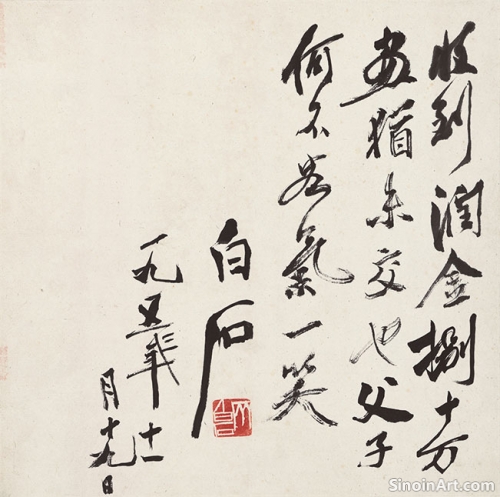 收到潤金捌十万
畫猶未交也父子
何不客氣一笑
白石
一九五三年十一
月十九日
SinoinArt.com